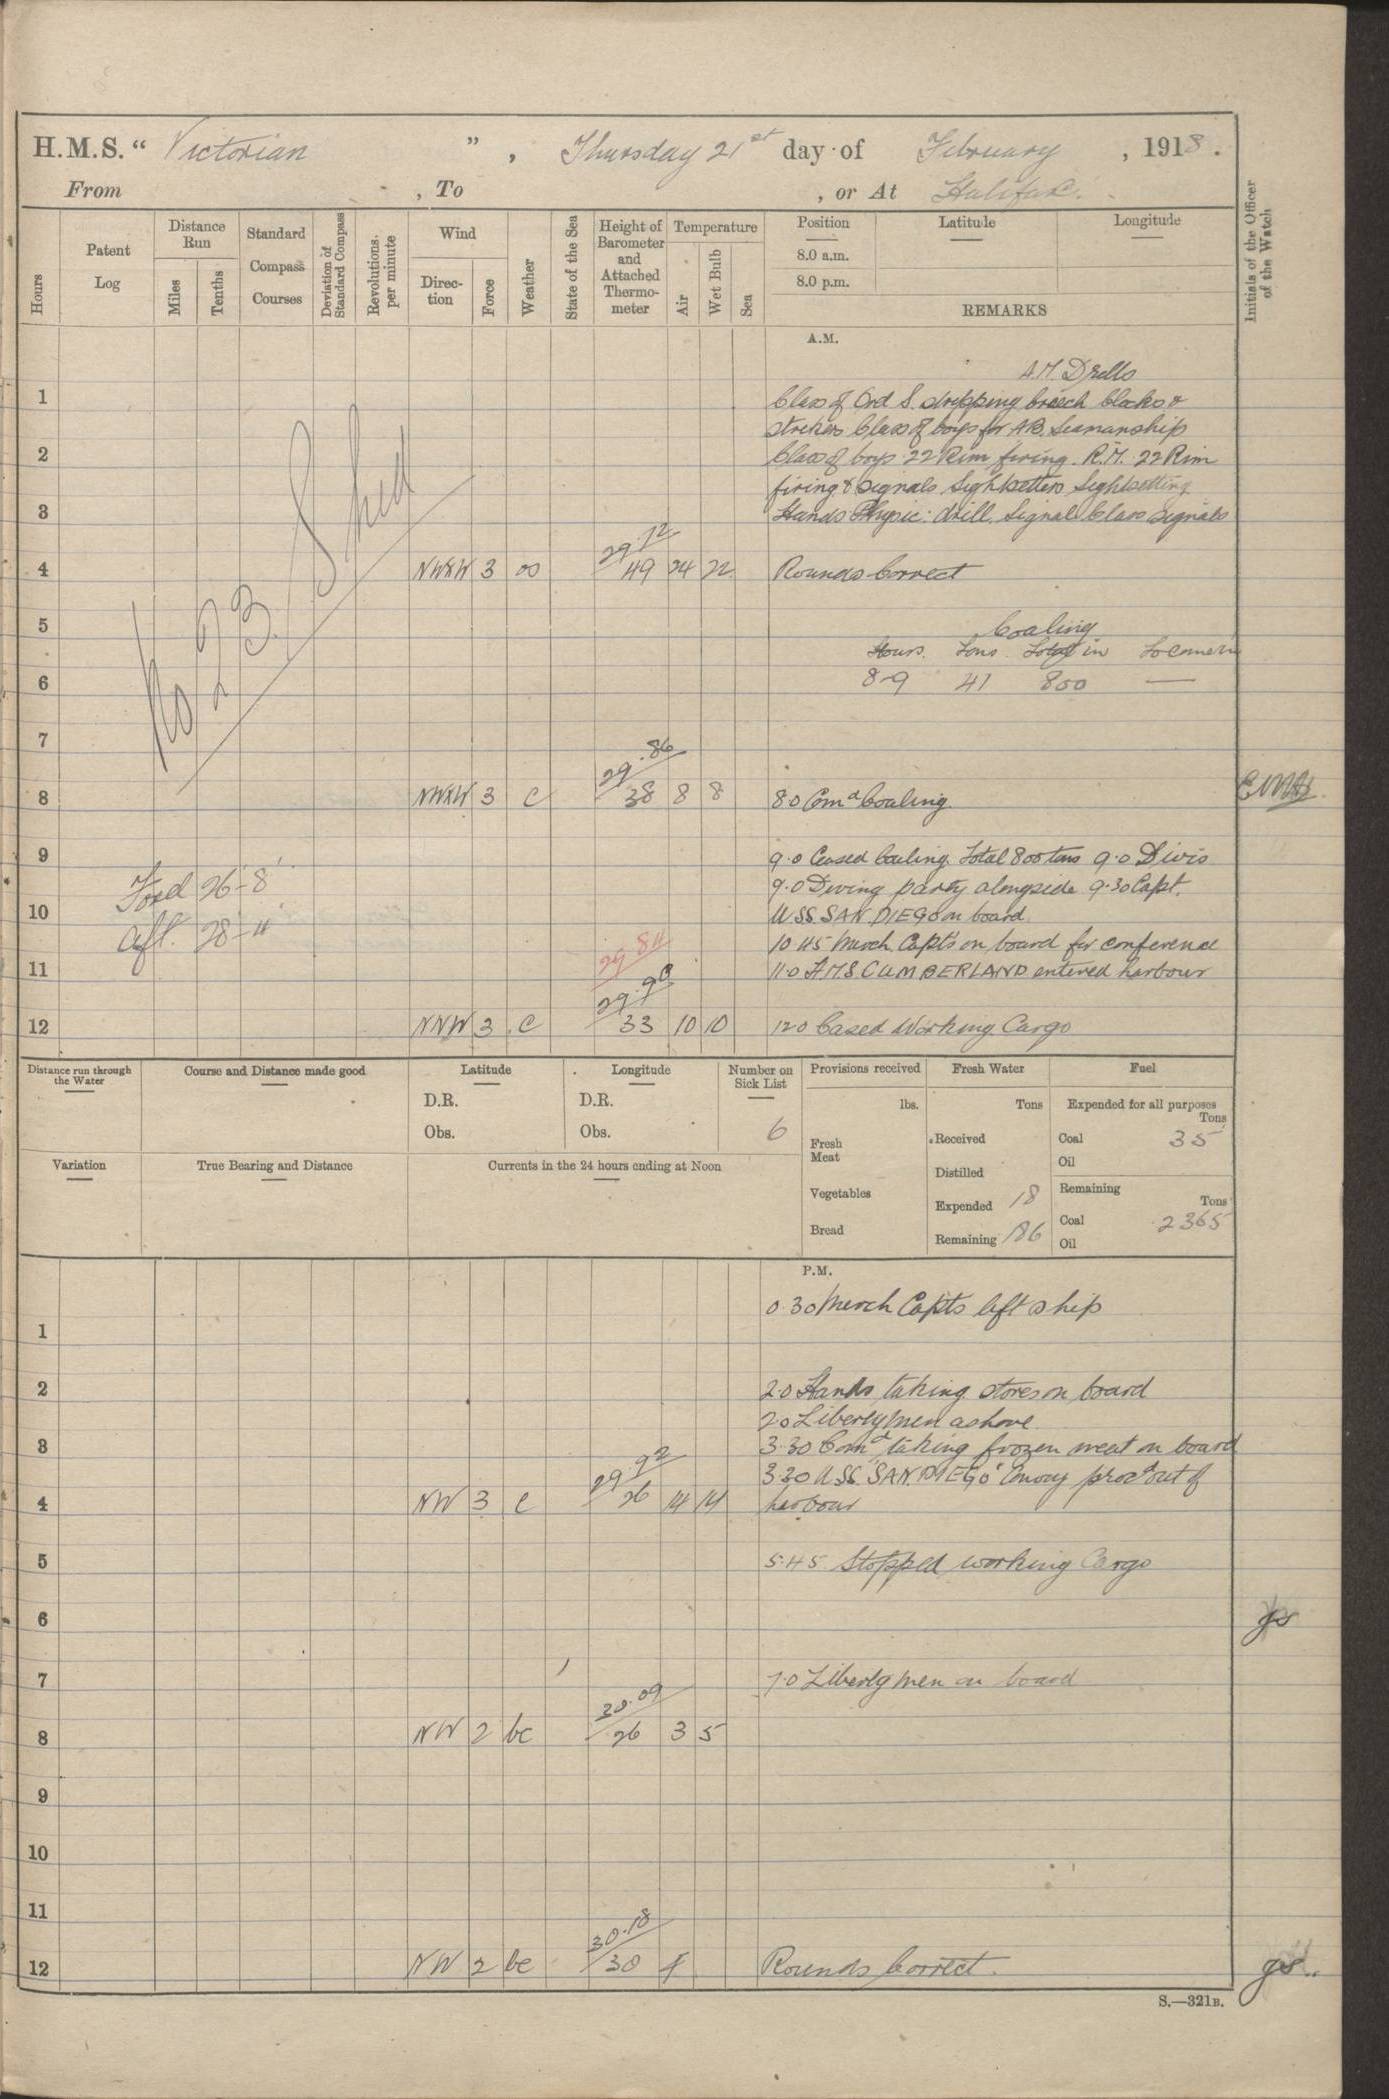 H.M.S. “ Victorian ” , Thursday 21st day of February , 1918 .
From , To , or At Halifax.
Hours
Patent Log
Distance Run
Miles
Tenths
Standard Compass Courses
Deviation of Standard Compass
Revolutions. per minute
Wind
Direc- tion
Force
Weather
State of the Sea
Height of Barometer and Attached Thermo- meter
Temperature
Air
Wet Bulb
Sea
Position
8.0 a.m.
8.0 p.m.
Latitude
Longitude
REMARKS
Initials of the Officer of the Watch
A.M.
A.M. Drills
1 Class of Ord S. stripping breech blocks &
strikers Class of boys for AB. Seamanship
2 Class of boys .22 Rim firing. R.M. 22 Rim
firing & Signals Sightsetters Sightsetting
3 Hands Physic: drill. Signal Class Signals
No 23. Shed
29.72
4 NWxW 3 os 49 24 22 Rounds Correct
5 Coaling
Hours. Tons Total in To come in
6 8-9 41 800 —
7
29.86
8 NWxW 3 c 38 8 8 8.0 Comd Coaling
9 9.0 Ceased Coaling. Total 800 tons 9.0 Divis
Ford 26'-8" 9.0 Diving party alongside. 9.30 Capt.
10 U.S.S. SAN DIEGO on board.
Aft. 28'-"
10.45 Merch. Capts on board for conference
29.84
11 11.0 H.M.S. CUMBERLAND entered harbour
29.90
12 NNW 3 c 33 10 10 12.0 Ceased Working Cargo
Distance run through the Water
Course and Distance made good
Latitude
D.R.
Obs.
Longitude
D.R.
Obs.
Number on Sick List
6
Provisions received
lbs.
Fresh Meat
Vegetables
Bread
Fresh Water
Tons
Received
Distilled
Expended 18
Remaining 186
Fuel
Expended for all purposes
Tons
Coal 35
Oil
Remaining
Tons
Coal 2365
Oil
Variation
True Bearing and Distance
Currents in the 24 hours ending at Noon
P.M.
0.30 Merch Capts left ship
1
2 2.0 Hands taking stores on board
2.0 Liberty men ashore
3 3.30 Comd taking frozen meat on board
29.92
3.30 U.S.S. "SAN DIEGO" Convoy procd out of
4 NW 3 c 26 14 14 harbour
5 5.45 Stopped working Cargo
6 gs
7 7.0 Liberty men on board
30.09
8 NW 2 bc 26 3 5
9
10
11
30.18
12 NW 2 bc 30 4 Rounds Correct. gs
S.—321B.